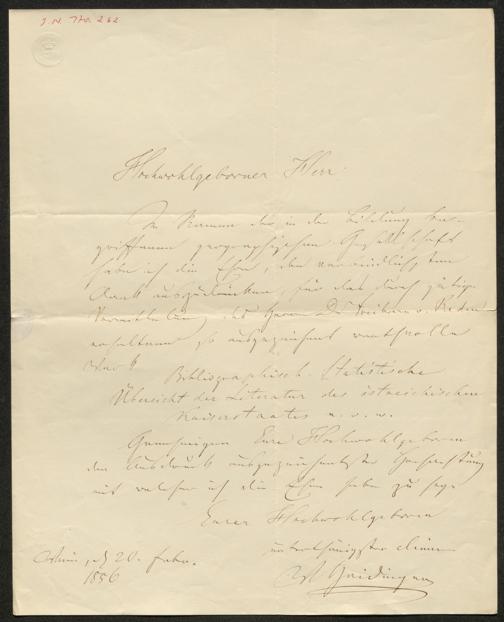 I.N. 170.262
Hochwohlgeborner Herr
Im Namen der in der Bildung be-
griffenen geographischen Gesellschaft
habe ich die Ehre, den verbindlichsten
Dank auszudrücken, für das durch gütige
Vermittelung des Herrn Dr Freiherrn v. Reden
erhaltene so ausgezeichnet werthvolle
Werk
Bibliographisch-statistische
Übersicht der Literatur des östreichischen
Kaiserstaates u. s. w.
Genehmigen Eure Hochwohlgeboren
den Ausdruck ausgezeichnetster Hochachtung
mit welcher ich die Ehre habe zu seyn
Eurer Hochwohlgeboren
unterthänigster Diener
W Haidinger
Wien, d 20. Febr.
1856